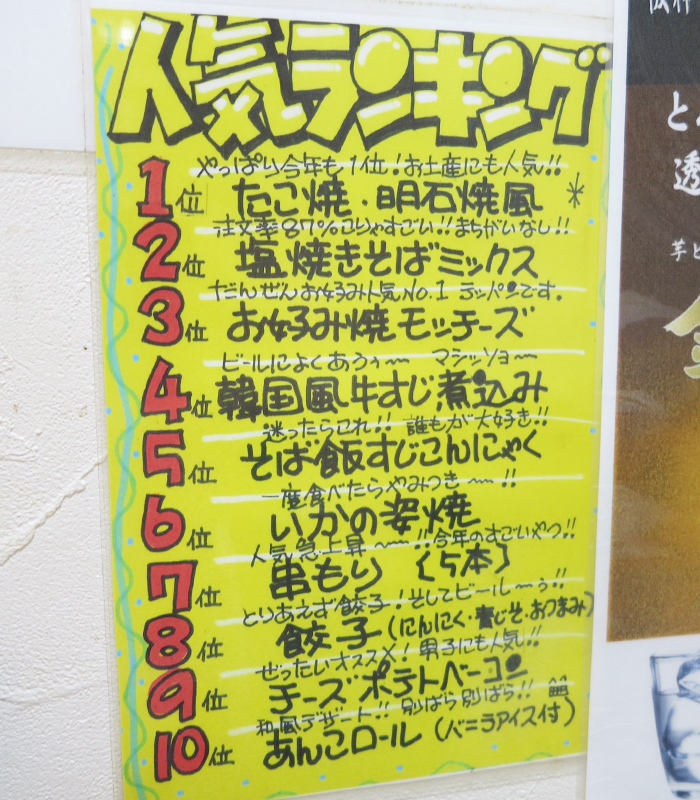 人気ランキング
やっぱり今年も1位!お土産にも人気!!
1位 たこ焼・明石焼風
注文率87%こりゃすごい!!まちがいなし!!
2位 塩焼きそばミックス
だんぜんお好み人気No.1 テッパンです。
3位 お好み焼モッチーズ
ビールによくあうぅ〜 マシッソヨ〜
4位 韓国風牛すじ煮込み
迷ったらこれ!! 誰もが大好き!!
5位 そば飯すじこんにゃく
一度食べたらやみつき〜!!
6位 いかの姿焼
人気急上昇〜!!今年のすごいやつ!!
7位 串もり (5本)
とりあえず餃子!そしてビール〜ぅ!!
8位 餃子(にんにく・青じそ・おつまみ)
ぜったいオススメ! 男子にも人気!!
9位 チーズポテトベーコン
和風デザート!! 別ばら別ばら!!
10位 あんこロール (バニラアイス付)
阪神
と
透
芋と
金